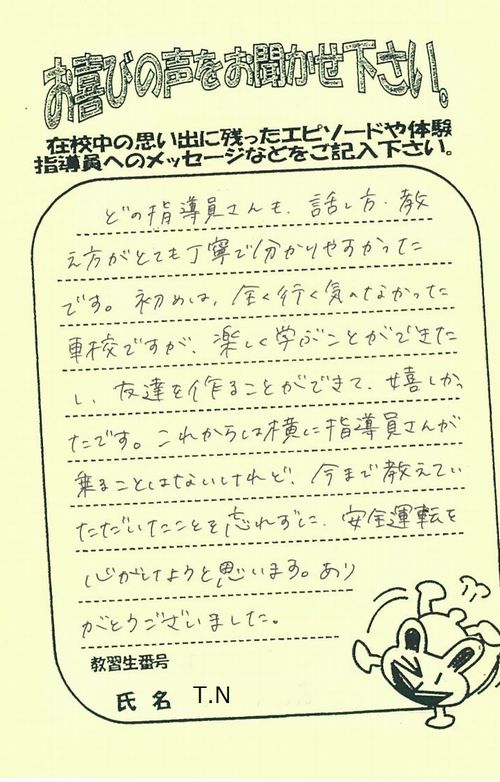 お喜びの声をお聞かせ下さい。
在校中の思い出に残ったエピソードや体験
指導員へのメッセージなどをご記入下さい。
どの指導員さんも、話し方、教
え方がとても丁寧で分かりやすかった
です。初めは、全く行く気のなかった
車校ですが、楽しく学ぶことができた
し、友達を作ることができて、嬉しかっ
たです。これからは横に指導員さんが
乗ることはないけれど、今まで教えてい
ただいたことを忘れずに、安全運転を
心がけようと思います。あり
がとうございました。
教習生番号
氏名 T.N